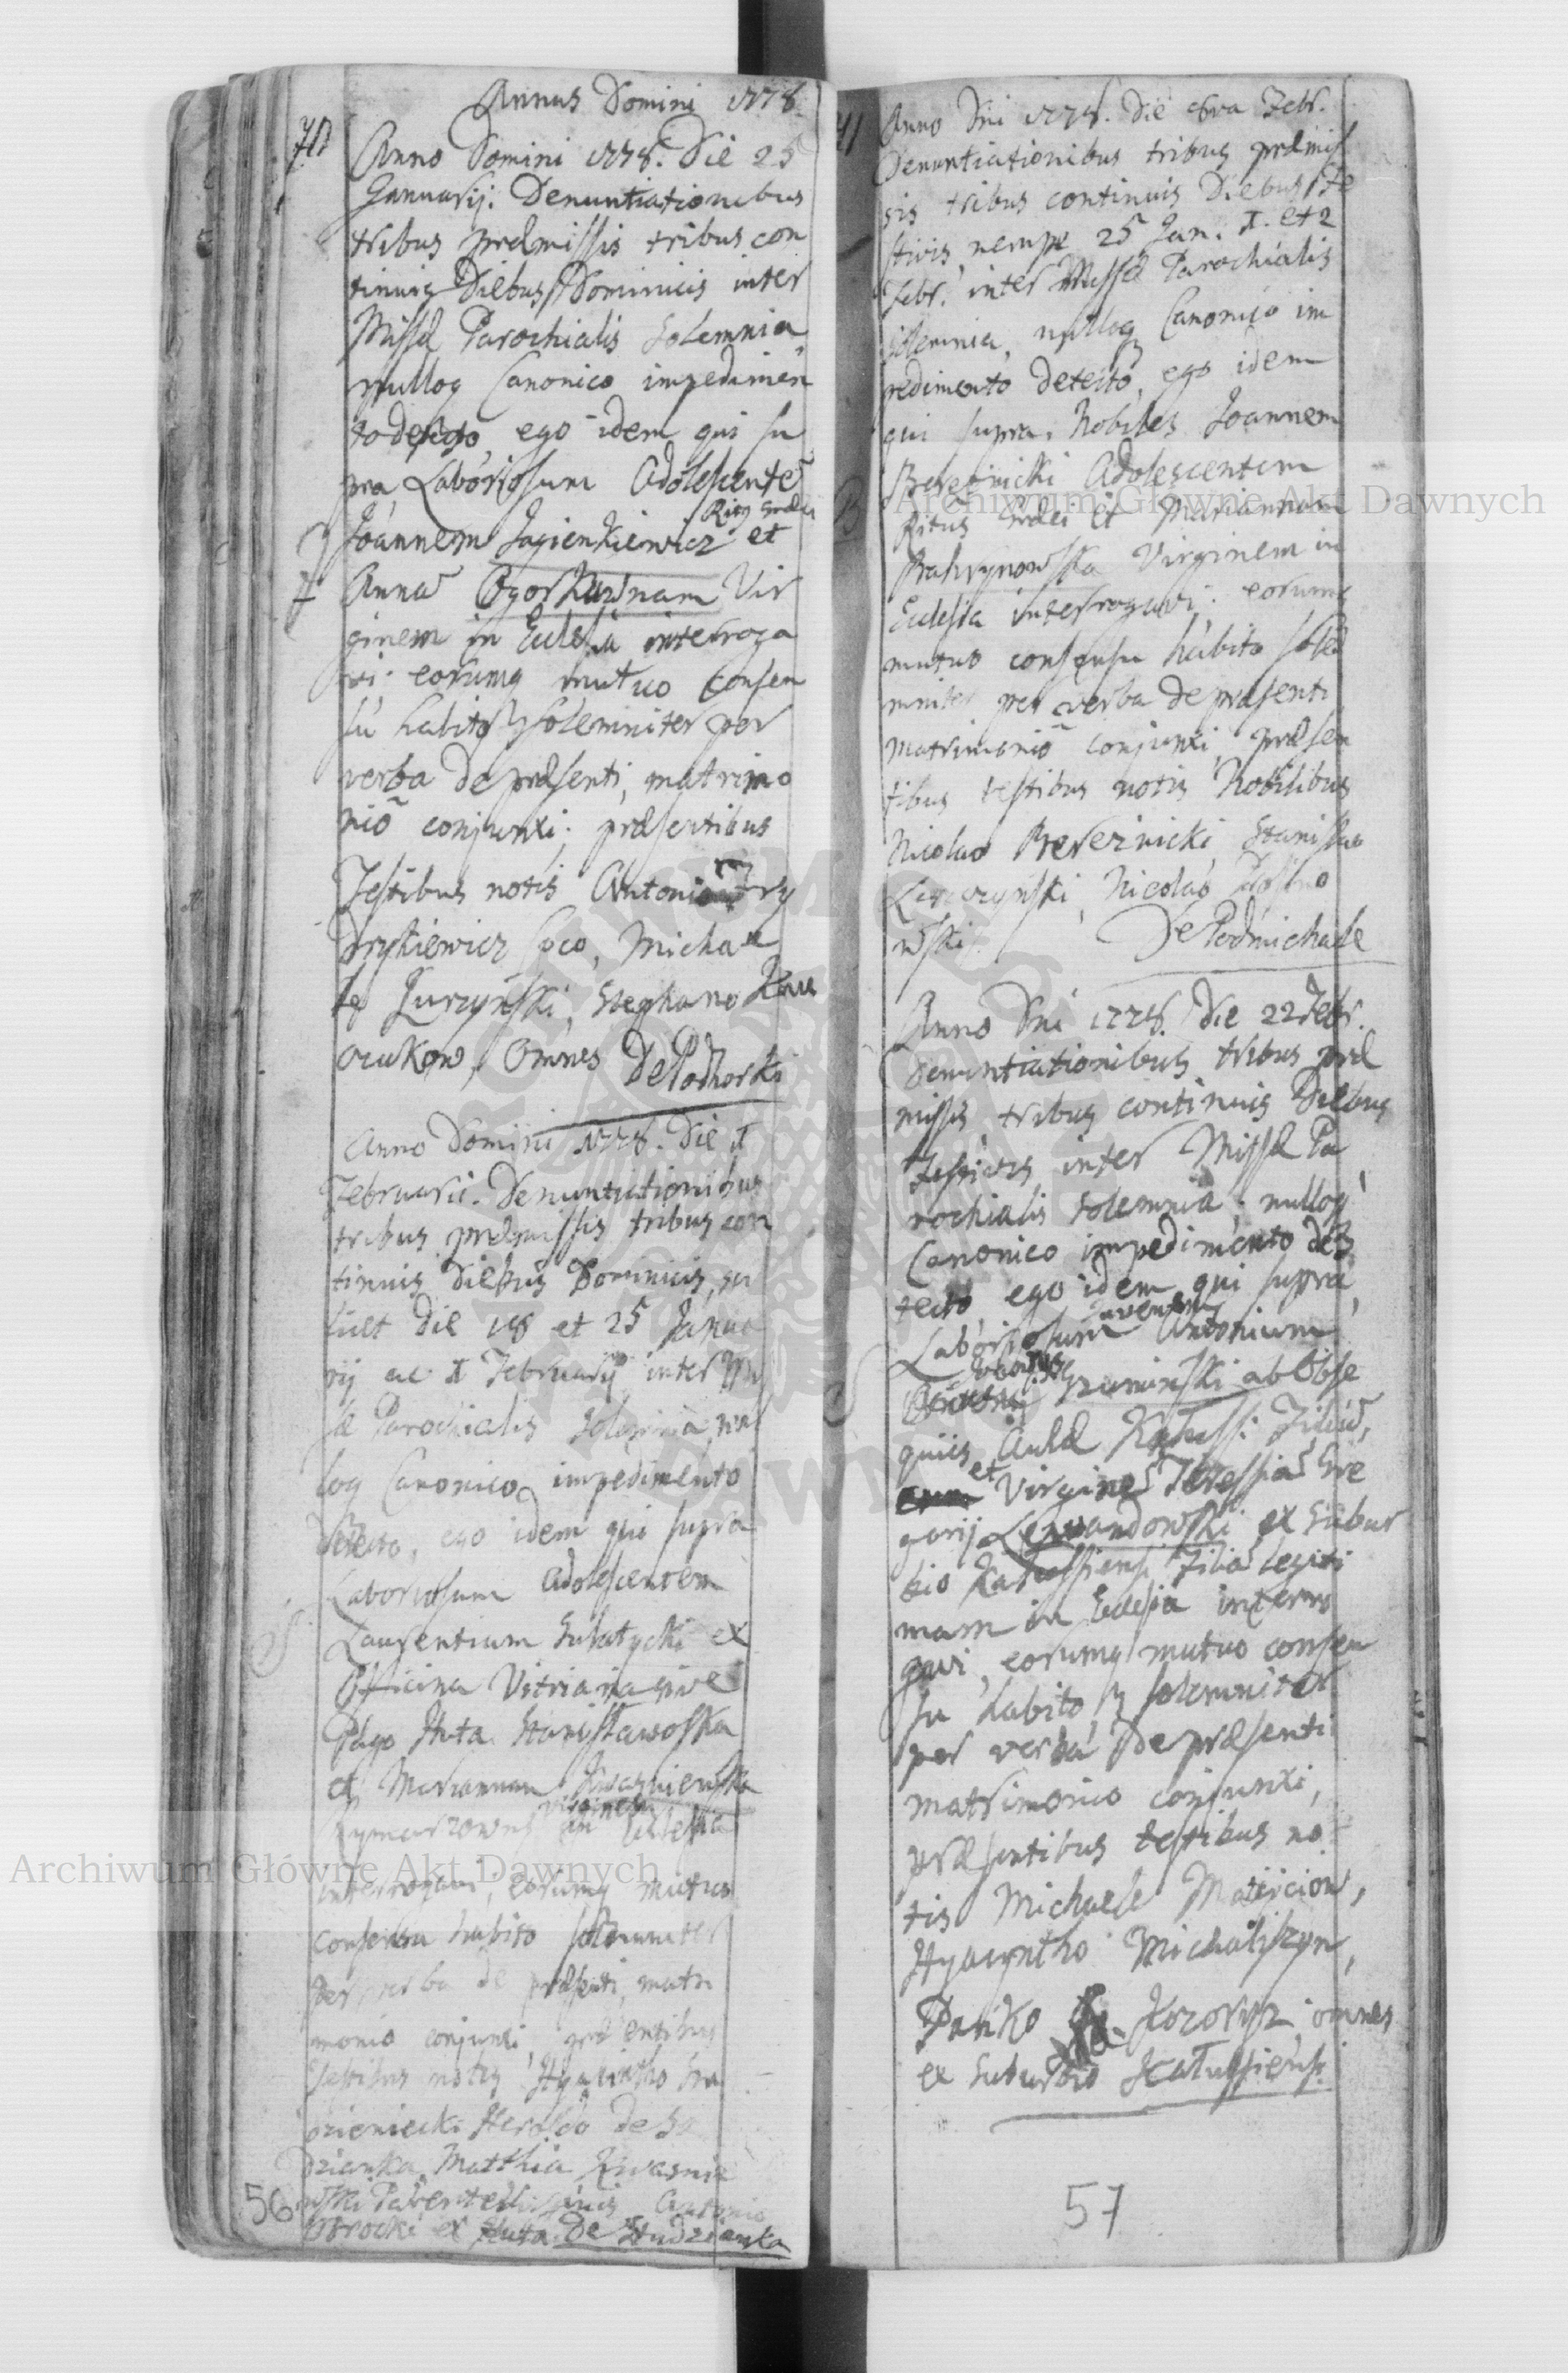 Annus Domini 1778.
70
Anno Domini 1778. Die 25
Januarij. Denuntiationibus
tribus præmissis tribus con
tinuis Diebus Dominicis inter
Missæ Parochialis Solemnia,
nulloq Canonico impedimen
to detecto, ego idem qui su
pra, Laboriosum Adolescentē
Ritus Græci
Joannem Jagienkiewicz et
Annā Ogorkuwnam Vir
ginem in Ecclesia interroga
vi; eorumq mutuo consen
su habito, solemniter per
verba de præsenti, matrimo
niō conjunxi; præsentibus
Testibus notis Antonio Fry
drykiewicz Loco, Michae
le Jurzyński, Stephano
Omnes De Podhorki
Anno Domini 1778. Die 1
Februarii. Denuntiationibus
tribus præmissis tribus con
tinuis diebus Dominicis, sci
licet Die 18 et 25 Janua
rij ac 1 Februarij inter Mis
sæ Parochialis Solemnia, nul
loq Canonico impedimento
detecto, ego idem qui supra
Laboriosum Adolescentem
Laurentium Sulatycki ex
Officina Vitriaria sive
Pago Huta Stanisławoska
et Mariannam Kwasniewska
Virginem
in Ecclesia
interrogavi, eorumq mutuo
consensu habito solemniter
per verba de præsenti, matri
monio conjunxi, præsentibus
testibus notis, Hyacintho Stu
dzieniecki De Stu
dzianka, Matthia Kwasnie
wski Antonio
ex Huta De Studzianka
56
71
Anno Dni 1778. Die 8va Febr.
Denuntiationibus tribus præmis
sis tribus continuis Diebus Fe
stivis, nempe 25 Jan. 1. et 2
Febr. inter Missæ Parochialis
solemnia, nulloq Canonico im
pedimento detecto, ego idem
qui supra, Nobiles Joannem
Bereznicki Adolescentem
B
Ritus Græci et Mariannam
Virginem in
Ecclesia interrogavi; eorumq
mutuo consensu habito sole
mniter per verba de præsenti
matrimoniō conjunxi, præsen
tibus testibus notis Nobilibus
Nicolao Bereznicki, Stanislao
Nicolao
wski. De Podmichale
Anno Dni 1778. Die 22 Febr.
Denuntiationibus tribus præ
missis tribus continuis Diebus
Festivis, inter Missæ Pa
rochialis solemnia, nulloq
Canonico impedimento de
tecto, ego idem qui supra,
Juvenem
Laboriosum Antonium
ab Obse
quiis Aulæ Kałuss: Filiū,
et Virginē Teressiā Gre
gorij Lewandowski ex Subur
bio Kałussiensi Filiā legiti
mam in Ecclesia interro
gavi, eorumq mutuo consen
su habito, solemniter
per verba de præsenti
matrimonio conjunxi,
præsentibus testibus no
tis Michaele Matijciow,
Hyacyntho Michaliszyn,
Pańko Kozoryz, omnes
ex Suburbio Kałussiensi.
57
Archiwum Główne Akt Dawnych
Archiwum Główne Akt Dawnych